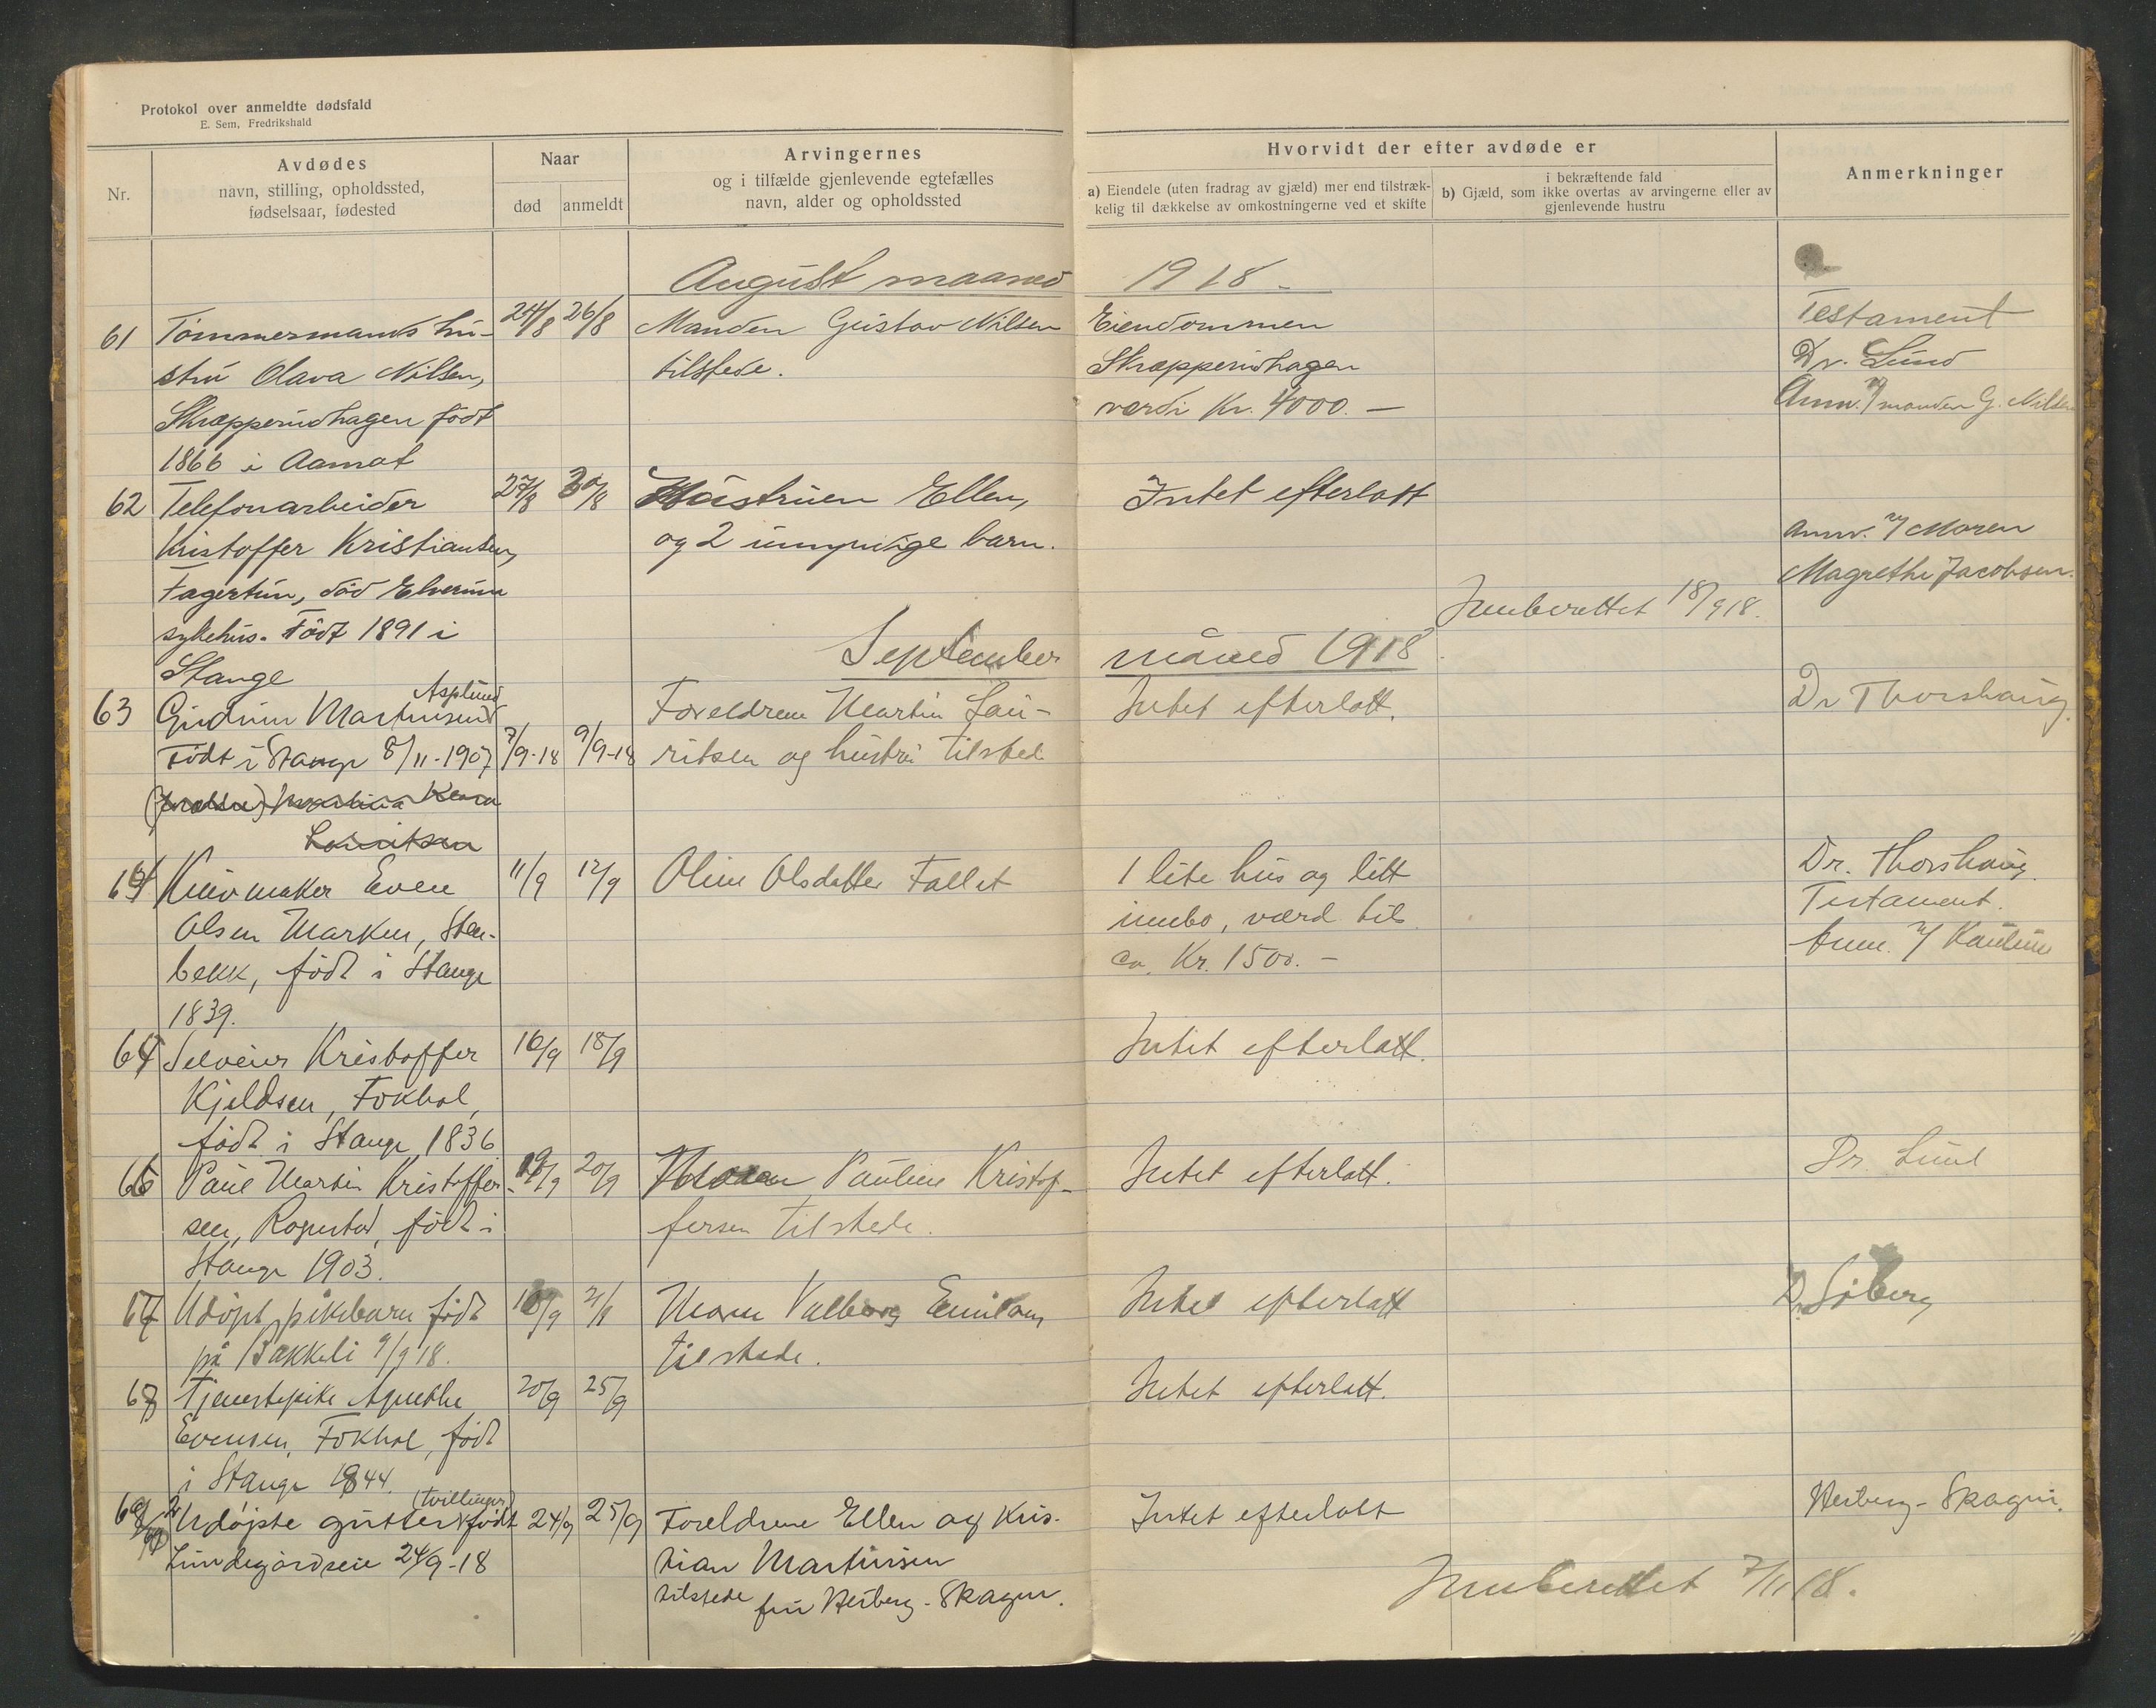 Protokol over anmeldte dødsfald
E. Sem, Fredrikshald
Nr.
Avdødes
navn, stilling, opholdssted,
fødselsaar, fødested
Naar
død
anmeldt
Arvingernes
og i tilfælde gjenlevende egtefælles
navn, alder og opholdssted
Hvorvidt der efter avdøde er
a) Eiendele (uten fradrag av gjæld) mer end tilstræk-
kelig til dækkelse av omkostningerne ved et skifte
i bekræftende fald
b) Gjæld, som ikke overtas av arvingerne eller av
gjenlevende hustru
Anmerkninger
August maaned 1918.
61 Tømmermands hu- 24/8 26/8 Manden Gustav Nilsen Eiendommen Testament
stru Olava Nilsen, tilstede. Skrapperudhagen Dr. Lund
Skrapperudhagen født verdi Kr. 4000.— Anm. v/ manden G. Nilsen
1866 i Aamot
62 Telefonarbeider 27/8 30/8 Hustruen Ellen, Intet efterlatt
Kristoffer Kristiansen, og 2 umyndige barn. Anm. v/ Maren
Fagertun, død Elverum Magrethe Jacobsen.
sykehus. Født 1891 i Innberettet 18/9 18.
Stange
September måned 1918.
63 Gudrun Martinsen Asplund Foreldrene Martin Lau- Intet efterlatt. Dr Thorshaug.
Født i Stange 8/11-1907 7/9-18 9/9-18 ritsen og hustru tilstede
Lauritsen
64 Kurvmaker Even 11/9 12/9 Oline Olsdatter Fallet 1 lite hus og litt Dr. Thorshaug.
Olsen Marken, Sten- innbo, værd til Testament.
bekk, født i Stange ca. Kr. 1500.— Anm. v/ Pauline
1839.
65 Selveier Kristoffer 16/9 18/9 Intet efterlatt.
Kjeldsen, Fokhol,
født i Stange 1836
66 Paul Martin Kristoffer- 19/9 20/9 Moren Pauline Kristof- Intet efterlatt. Dr. Lund
sen, Rogstad, født i fersen tilstede.
Stange 1903.
67 Udøpt pikebarn født 10/9 Moren Valborg Intet efterlatt Dr. Sjøberg
på Bakkeli 9/9 18. tilstede.
68 Tjenestepike Agnethe 20/9 25/9 Intet efterlatt.
Evensen, Fokhol, født
i Stange 1844.
69/70 2 Udøpte gutter (tvillinger) født 24/9 25/9 Foreldrene Ellen og Kris- Intet efterlatt Heiberg-Skagen.
Lundegårdseie 24/9-18 tian Martinsen
tilstede fru Heiberg-Skagen.
Innberettet 7/11 18.